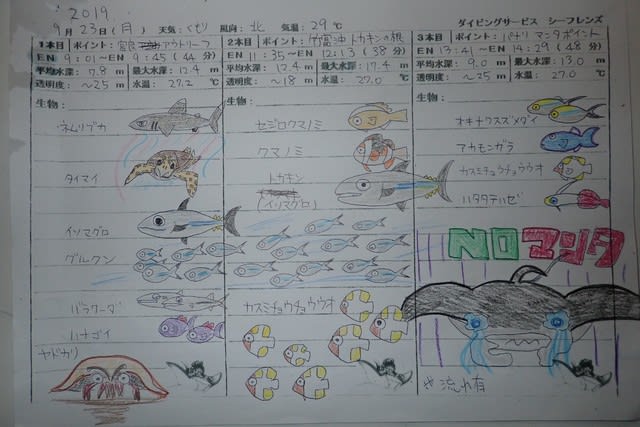 2019
9月23日(月) 天気:くもり 風向:北 気温:29℃ ダイビングサービス シーフレンズ
1本目 ポイント: アウトリーフ
EN 9:01 〜 EN 9:45 (44分)
平均水深: 7.8 m 最大水深: 12.4 m
透明度: 〜25 m 水温: 27.2 ℃
生物:
ネムリブカ
タイマイ
イソマグロ
グルクン
バラクーダ
ハナゴイ
ヤドカリ
2本目 ポイント: トカキンの根
EN 11:35 〜 EN 12:13 (38分)
平均水深: 12.4 m 最大水深: 17.4 m
透明度: 〜18 m 水温: 27.0 ℃
生物:
セジロクマノミ
クマノミ
トカキン
(イソマグロ)
カスミチョウチョウウオ
3本目 ポイント: パナリ マンタポイント
EN 13:41 〜 EN 14:29 (48分)
平均水深: 9.0 m 最大水深: 13.0 m
透明度: 〜25 m 水温: 27.0 ℃
生物:
オキナワスズメダイ
アカモンガラ
カスミチョウチョウウオ
ハタタテハゼ
NO マンタ
流れ有